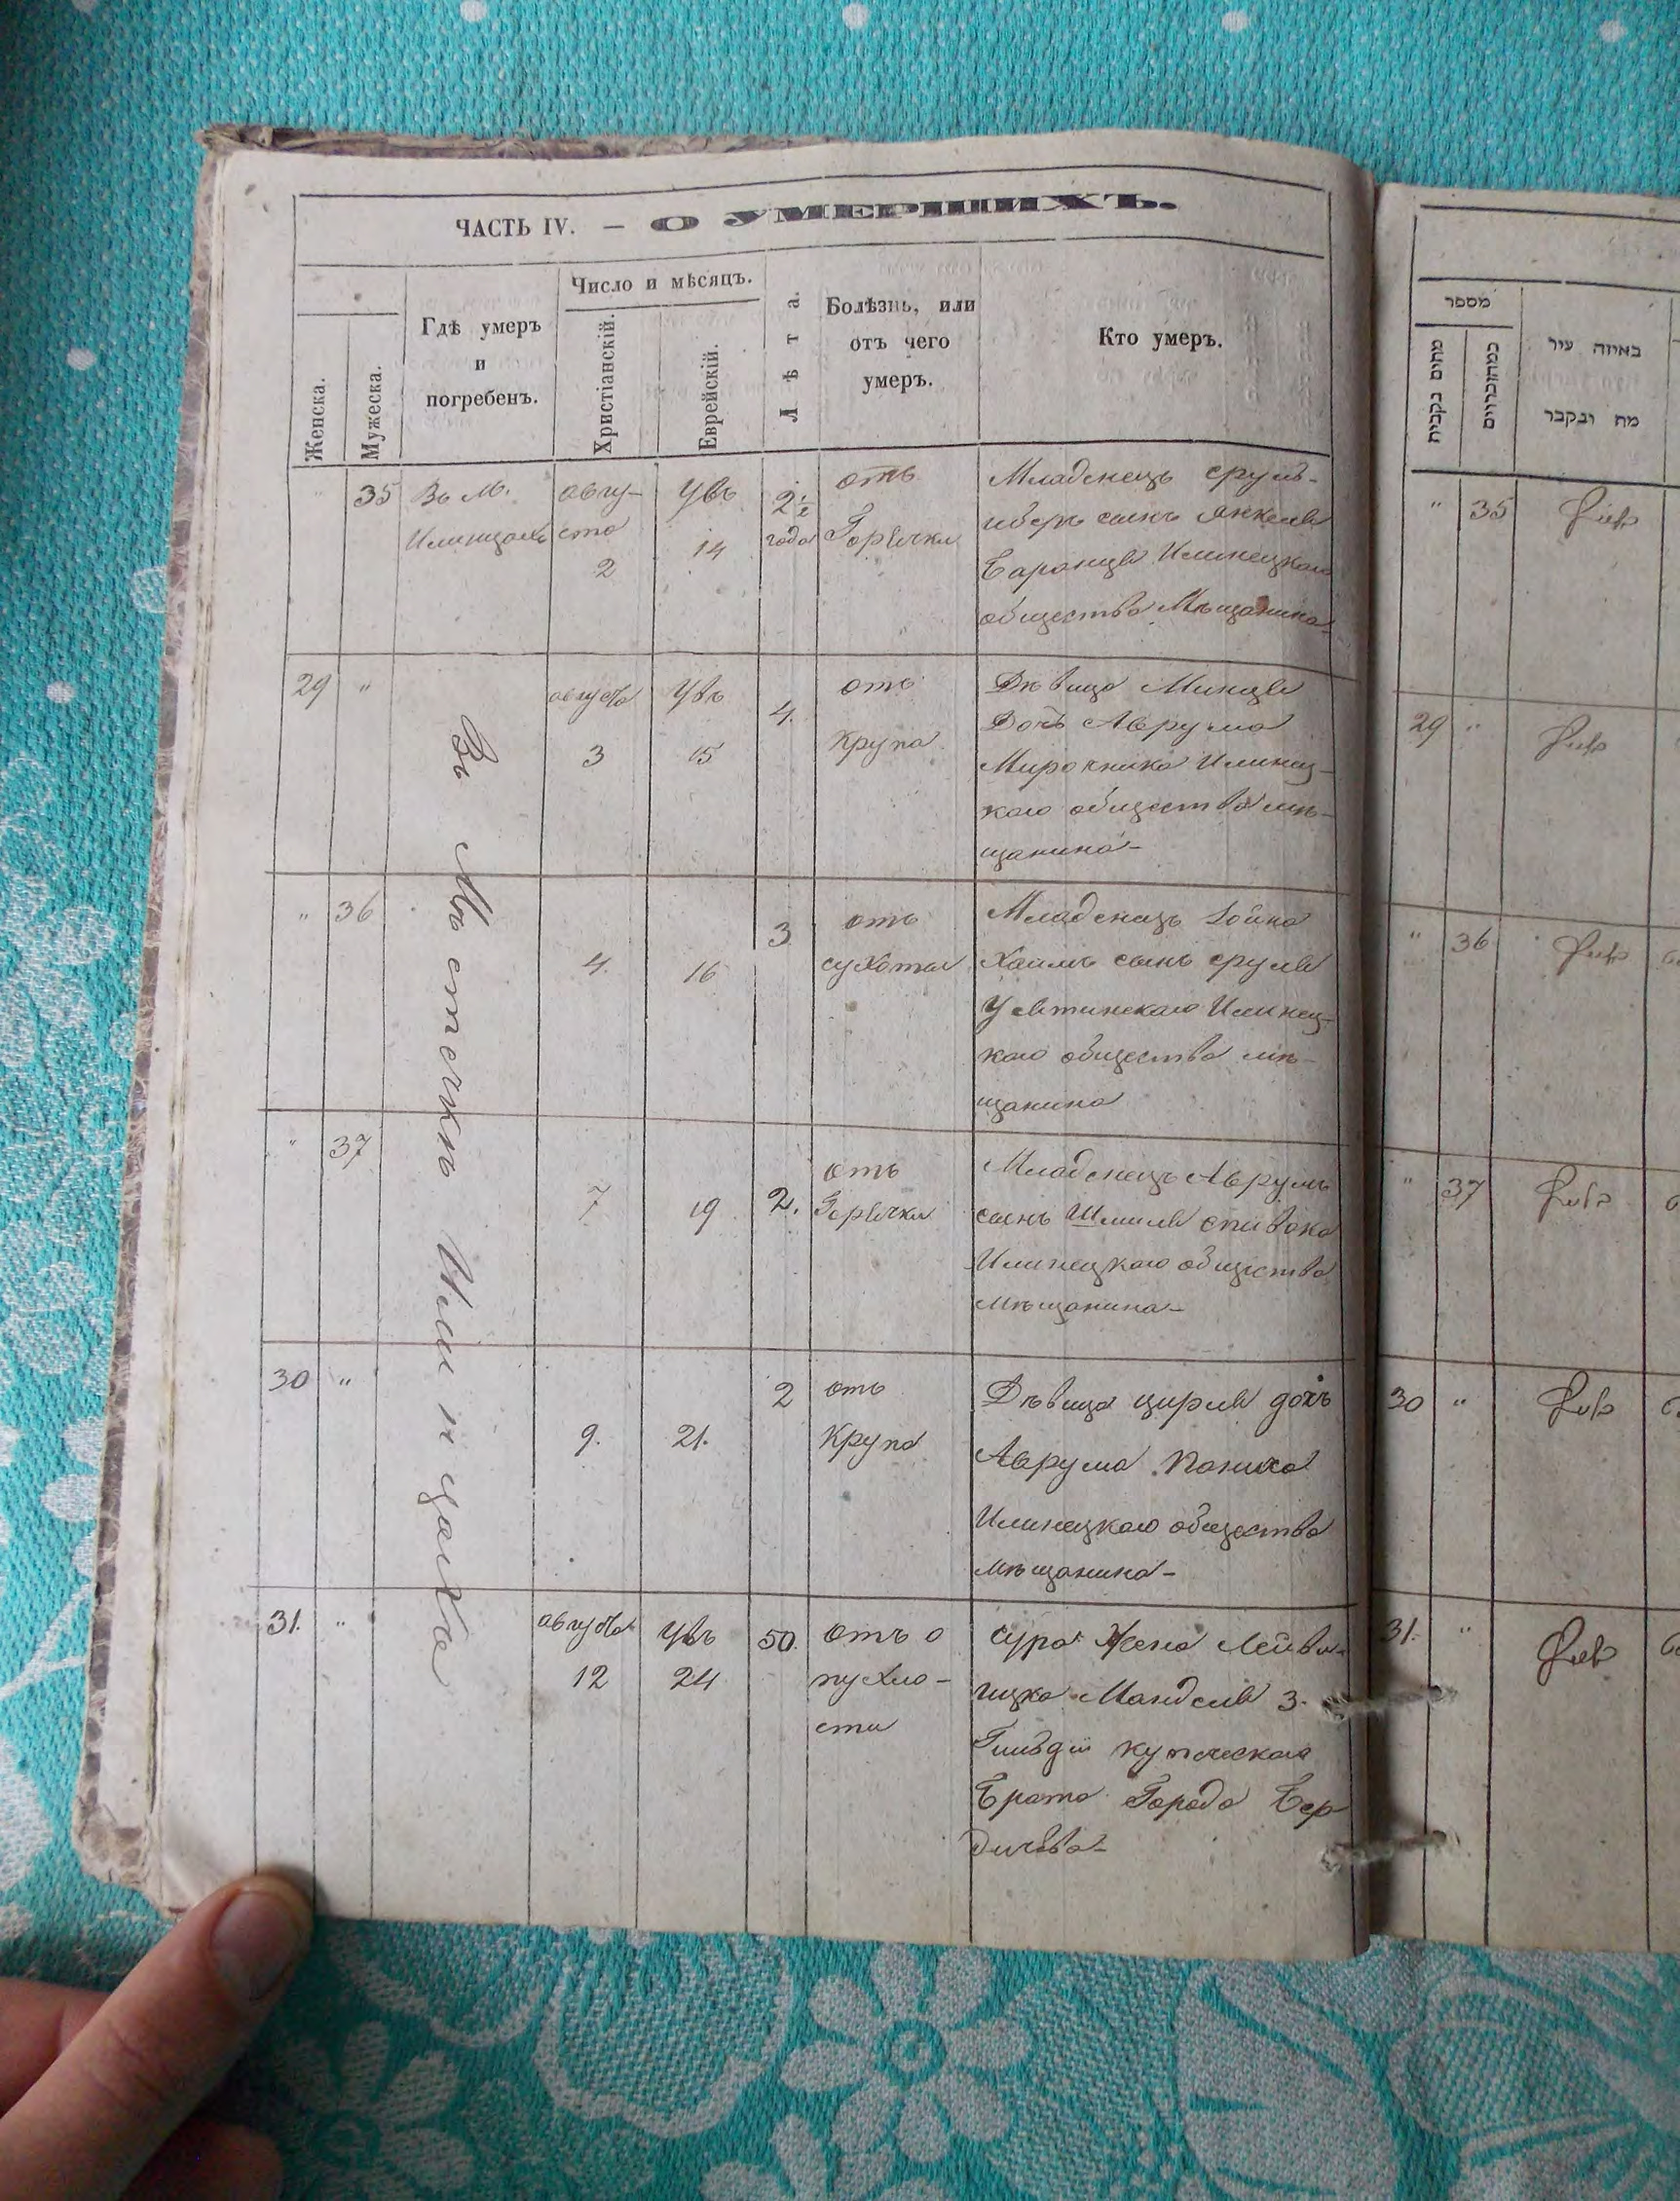 ЧАСТЬ IV. — О УМЕРШИХЪ.
Женска.
Мужеска.
Гдѣ умеръ
и
погребенъ.
Число и мѣсяцъ.
Христіанскій.
Еврейскій.
Лѣта.
Болѣзнь, или
отъ чего
умеръ.
Кто умеръ.
" 35
Въ М.
Илинцахъ
авгу-
ста
2
14
2½
года
отъ
Горячки
Младенецъ сруль-
иберъ сынъ Янкеля
Илинецкаго
общества Мѣщанина
29 "
Въ Мѣстечкѣ Илинцахъ
августа
3
15
4.
отъ
крупа
Дѣвица
Дочъ Аврума
Мирочника Илинец-
каго общества мѣ-
щанина-
" 36
4.
16
3
отъ
сухоты
Младенецъ
Хаимъ сынъ сруля
Илинец-
каго общества мѣ-
щанина
" 37
7
19
2.
отъ
Горячки
Младенецъ Аврумъ
сынъ Шмиля спивака
Илинецкаго общества
мѣщанина-
30 "
9.
21.
2
отъ
крупа
Дѣвица цирля дочъ
Аврума
Илинецкаго общества
мѣщанина-
31. "
августа
12
24
50.
отъ о
пухло-
сти
сура Жена Лейби-
ицка Манделя 3.
Гильдіи купеческаго
брата Города Бер
дичева-
מספר
מהים נקבית
כמהזכרים
באיזה עיר
מת ונקבר
" 35
29 "
" 36
" 37
30 "
31. "